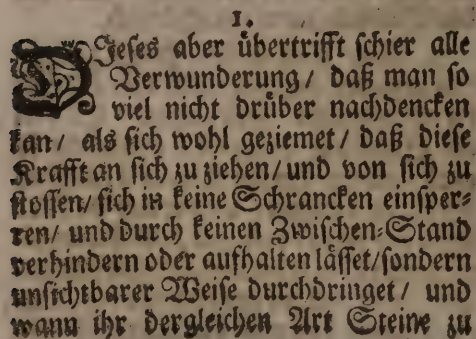 I.
Dieses aber übertrifft schier alle
Verwunderung / daß man so
viel nicht drüber nachdencken
kan / als sich wohl geziemet / daß diese
Krafft an sich zu ziehen / und von sich zu
stossen / sich in keine Schrancken einsper-
ren / und durch keinen Zwischen-Stand
verhindern oder aufhalten lässet / sondern
unsichtbarer Weise durchdringet / und
wann ihr dergleichen Art Steine zu